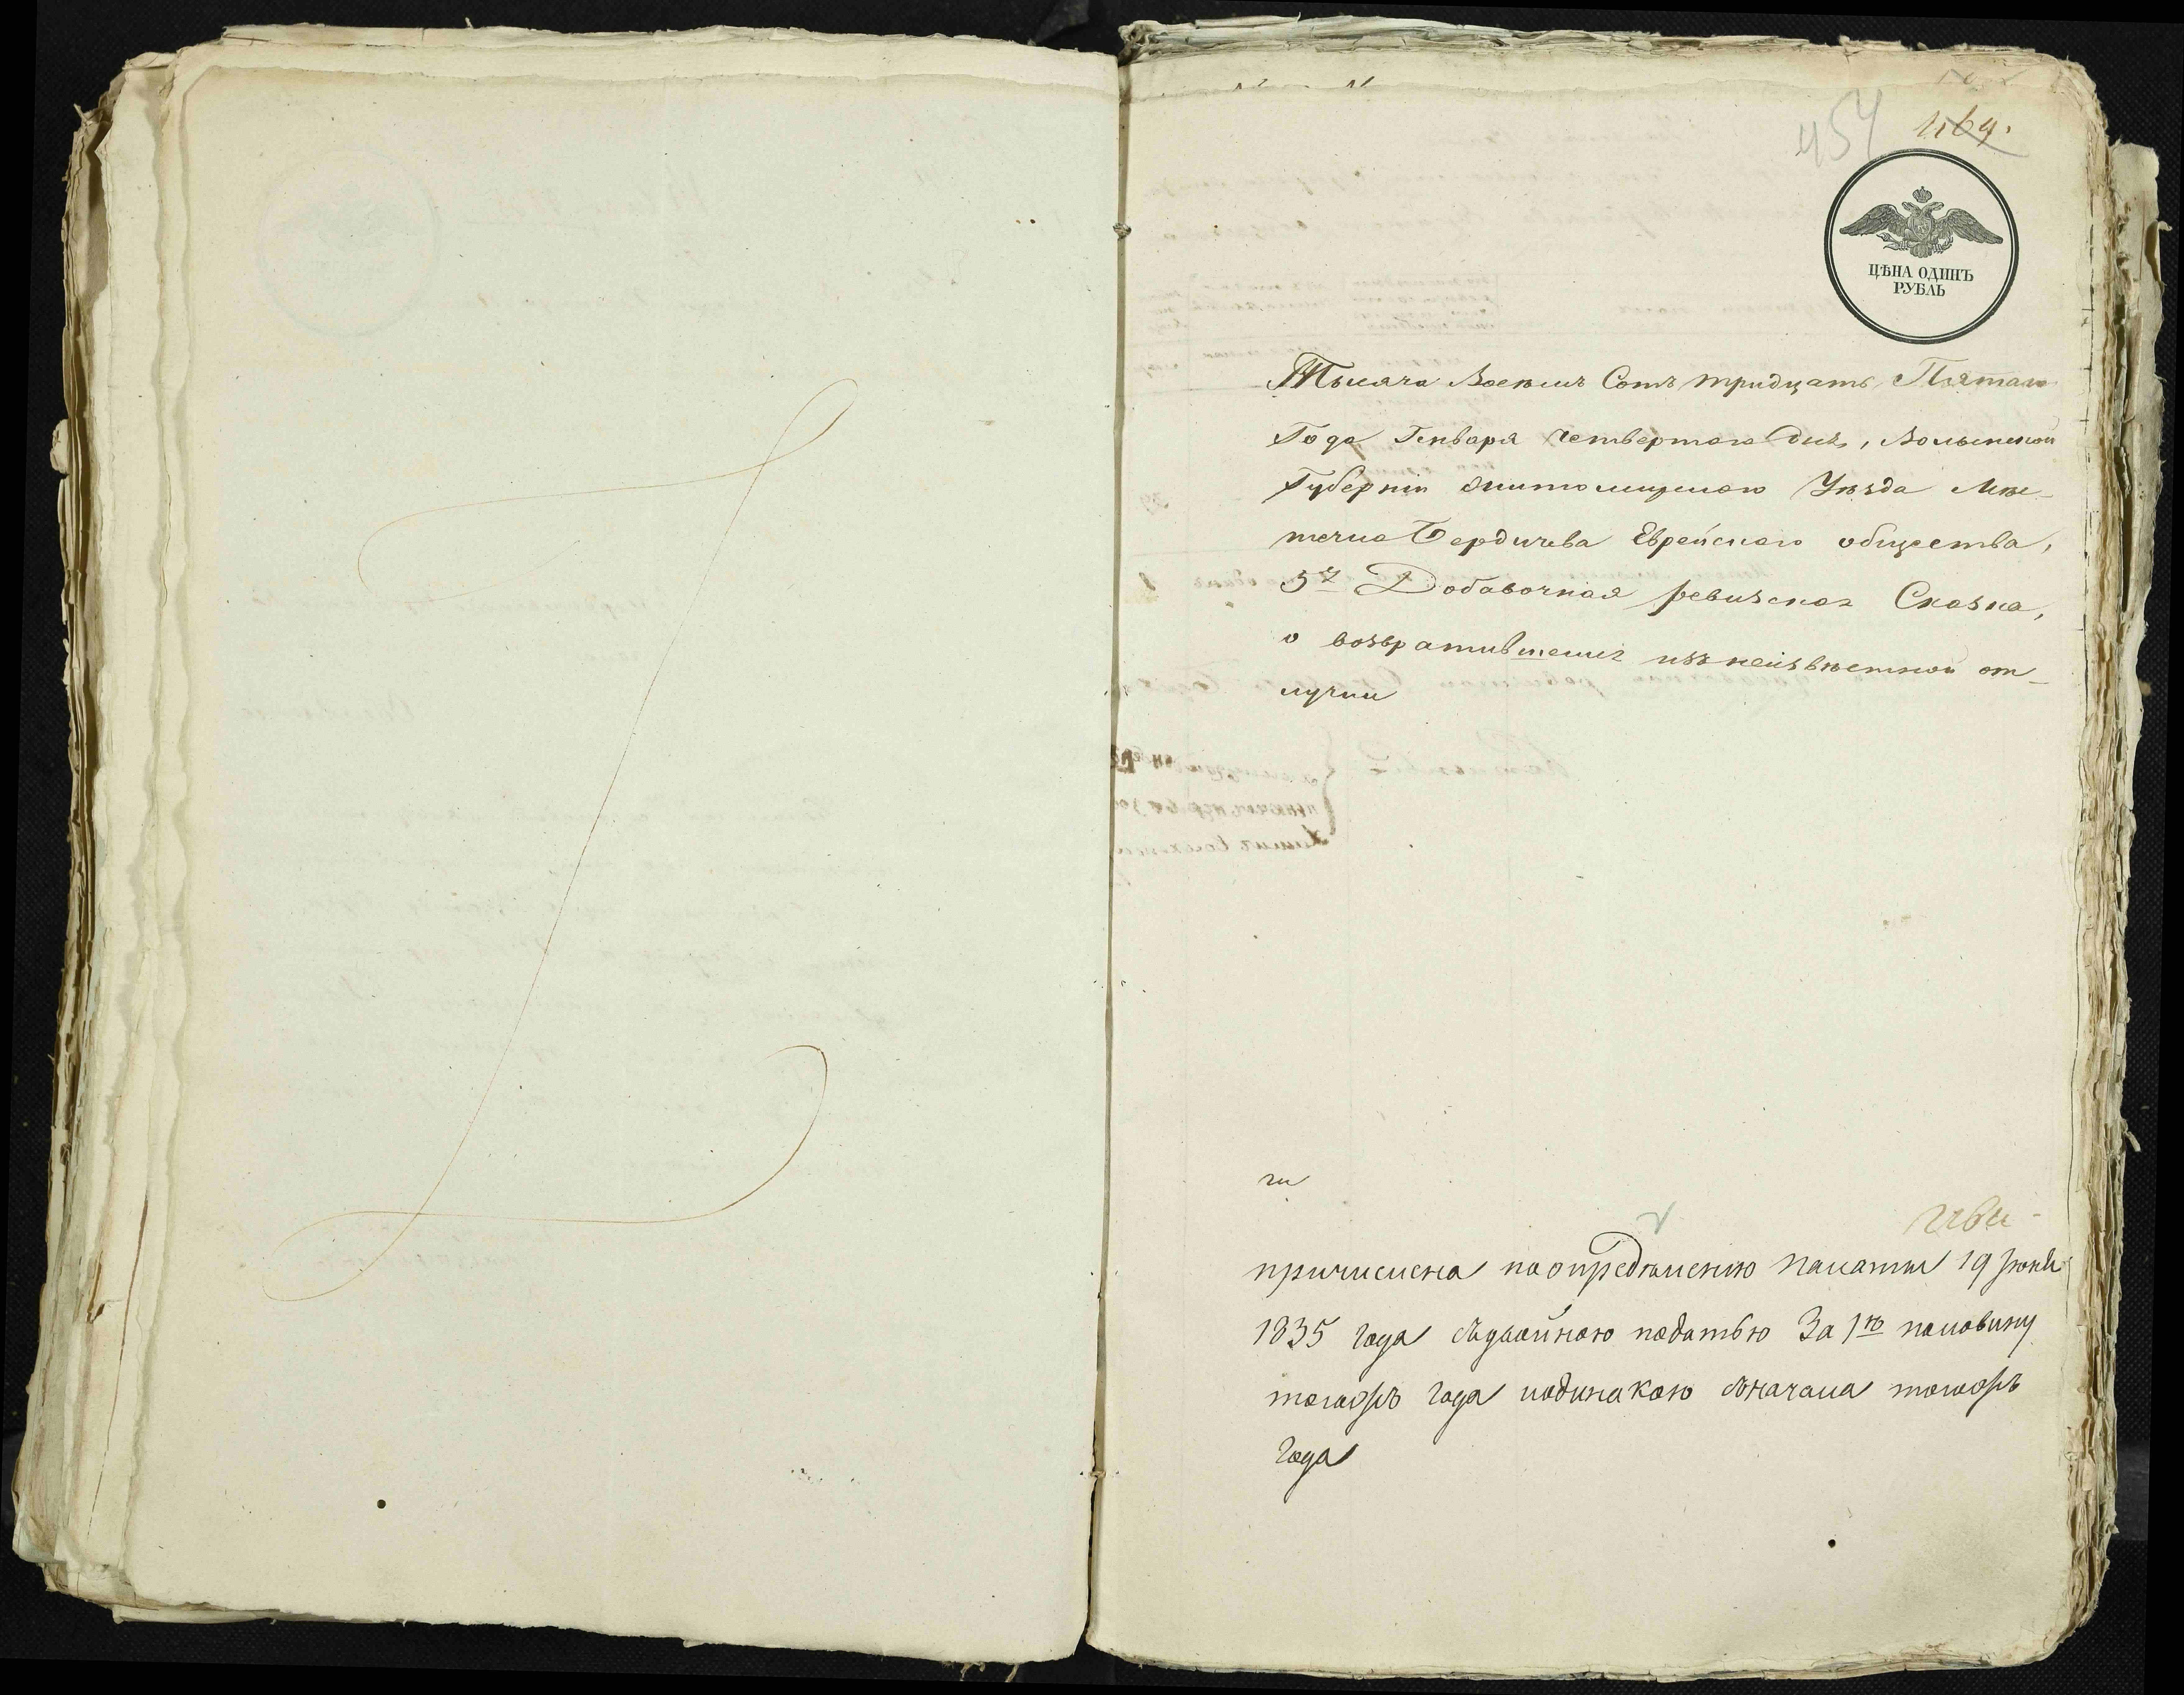 454
469.
ЦѢНА ОДИНЪ
РУБЛЬ
Тысяча Восемъ Сотъ тридцать Пятаго
Года Генваря четвертаго дня, Волынской
Губерніи Житомирскаго Уѣзда Мѣс-
течка Бердичева Еврейскаго общества,
5я Добавочная ревизская Сказка,
о возвратившемся изъ неизвѣстной от-
лучки
причислена по опредѣленію палаты 19 Іюня
1835 года съ двойною податью За 1ю половину
тогожъ года и одинакою сначала тогожъ
года